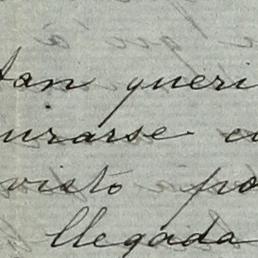 tan queri
urarse c
visto po
llegada